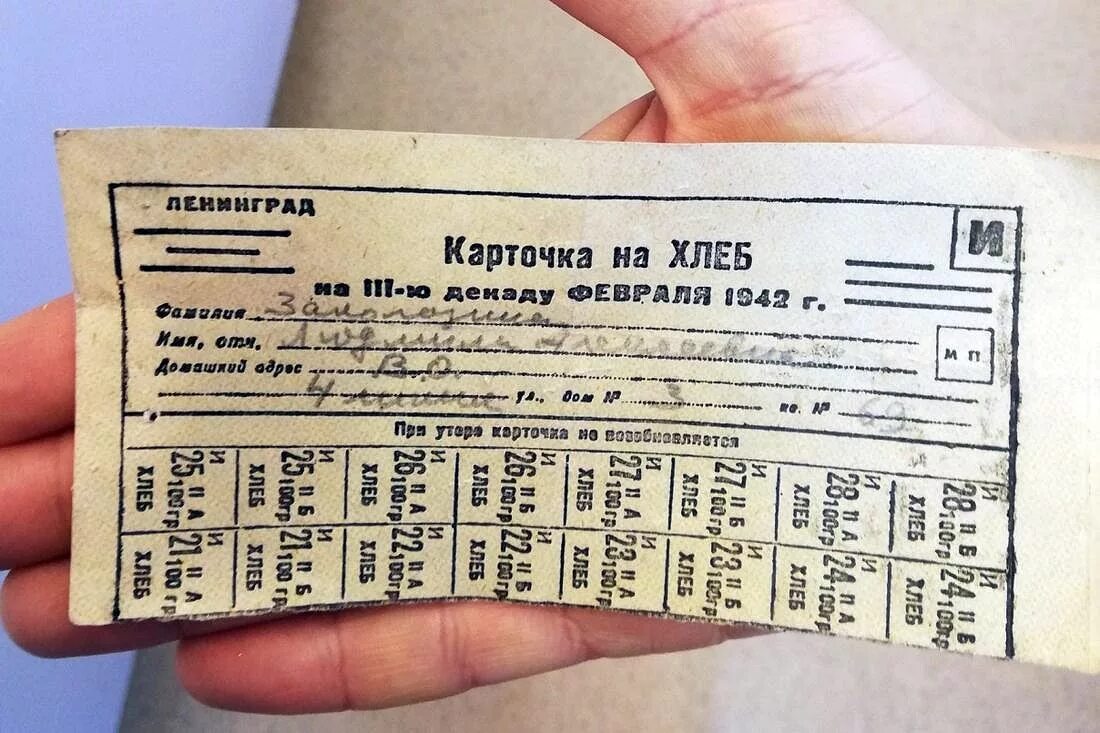 ЛЕНИНГРАД
И
Карточка на ХЛЕБ
на III-ю декаду ФЕВРАЛЯ 1942 г.
Фамилия
Имя, отч. Людмила
М П
Домашний адрес В.О.
4 линия ул., дом № 3 кв. № 69
При утере карточка не возобновляется
И 25 II А 100 гр ХЛЕБ
И 25 II Б 100 гр ХЛЕБ
И 26 II А 100 гр ХЛЕБ
И 26 II Б 100 гр ХЛЕБ
И 27 II А 100 гр ХЛЕБ
И 27 II Б 100 гр ХЛЕБ
И 28 II А 100 гр ХЛЕБ
И 28 II Б 100 гр ХЛЕБ
И 21 II А 100 гр ХЛЕБ
И 21 II Б 100 гр ХЛЕБ
И 22 II А 100 гр ХЛЕБ
И 22 II Б 100 гр ХЛЕБ
И 23 II А 100 гр ХЛЕБ
И 23 II Б 100 гр ХЛЕБ
И 24 II А 100 гр ХЛЕБ
И 24 II Б 100 гр ХЛЕБ